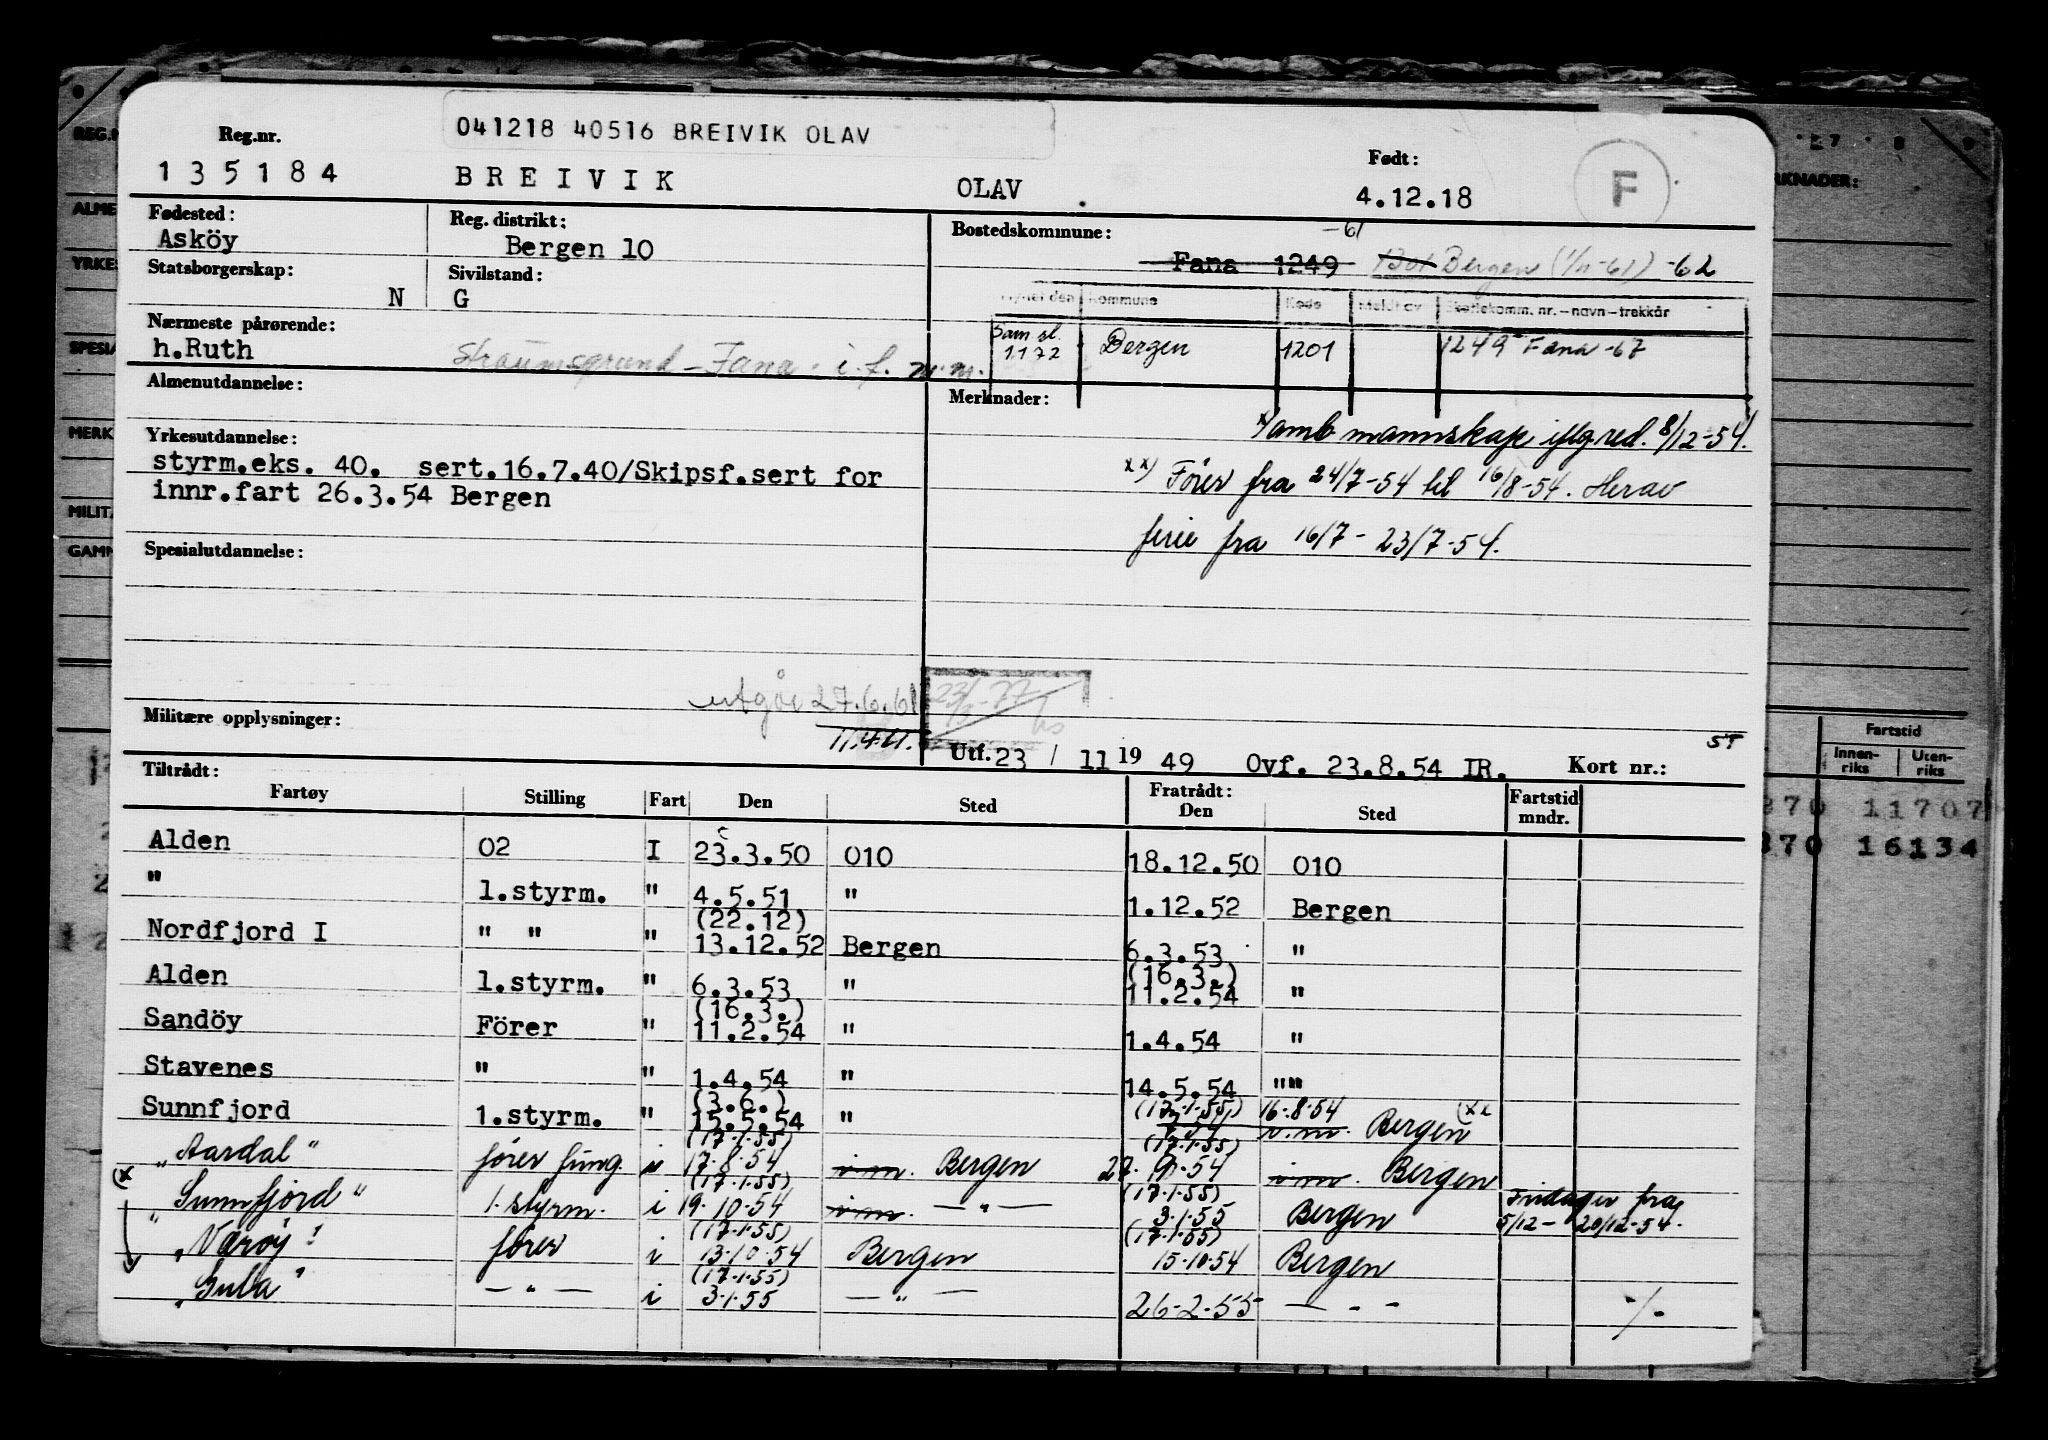 041218 40516 BREIVIK OLAV
Reg.nr. Født:
135184 BREIVIK OLAV 4.12.18 F
Fødested: Reg. distrikt: Bostedskommune: -61
Asköy Bergen 10 Fana 1249 1301 Bergen (1/11-61) -62
Statsborgerskap: Sivilstand:
N G
Kommune Kode Meldt av Skattekomm. nr. – navn – trekkår
Nærmeste pårørende:
h.Ruth Straumsgrund - Fana. i.f. m.m.
Sam sl. 1172 Bergen 1201 1249 Fana -67
Almenutdannelse: Merknader:
x) amb mannskap iflg red. 8/12-54.
Yrkesutdannelse:
styrm.eks. 40. sert.16.7.40/Skipsf.sert for
innr.fart 26.3.54 Bergen
xx) Förer fra 24/7-54 til 16/8-54. Herav
ferie fra 16/7 - 23/7-54.
Spesialutdannelse:
utgår 27.6.61
Militære opplysninger:
11.4.61.
ST
Utf. 23 / 11 19 49 Ovf. 23.8.54 IR. Kort nr.:
Tiltrådt: Fratrådt:
Fartøy Stilling Fart Den Sted Den Sted Fartstid mndr.
Alden 02 I 23.3.50 010 18.12.50 010
" 1.styrm. " 4.5.51 " 1.12.52 Bergen
(22.12)
Nordfjord I " " " 13.12.52 Bergen 6.3.53 "
(16.3.)
Alden 1.styrm. " 6.3.53 " 11.2.54 "
(16.3.)
Sandöy Förer " 11.2.54 " 1.4.54 "
Stavenes " " 1.4.54 " 14.5.54 ""
(3.6.) (17.1.55) 16.8.54
Sunnfjord 1.styrm. " 15.5.54 " v.m. Bergen (xx
(17.1.55) (17.1.55)
"Aardal" fører fung. i 17.8.54 v.m. Bergen 27.9.54 v.m. Bergen
(x (17.1.55) (17.1.55)
"Sunnfjord" 1. styrm. i 19.10.54 v.m. — " — 3.1.55 Bergen Fridager fra 5/12 - 20/12-54.
(17.1.55) (17.1.55)
"Værøy" fører i 13.10.54 Bergen 15.10.54 Bergen
(17.1.55)
"Gula" — " — i 3.1.55 — " — 26-2-55 — " —
-/-
REG.N
ALME
YRKES
SPESIA
MERK
MILITÆ
GAMM
7 8 9
RKNADER:
Fartstid
Innen-riks Uten-riks
370 11707
370 16134